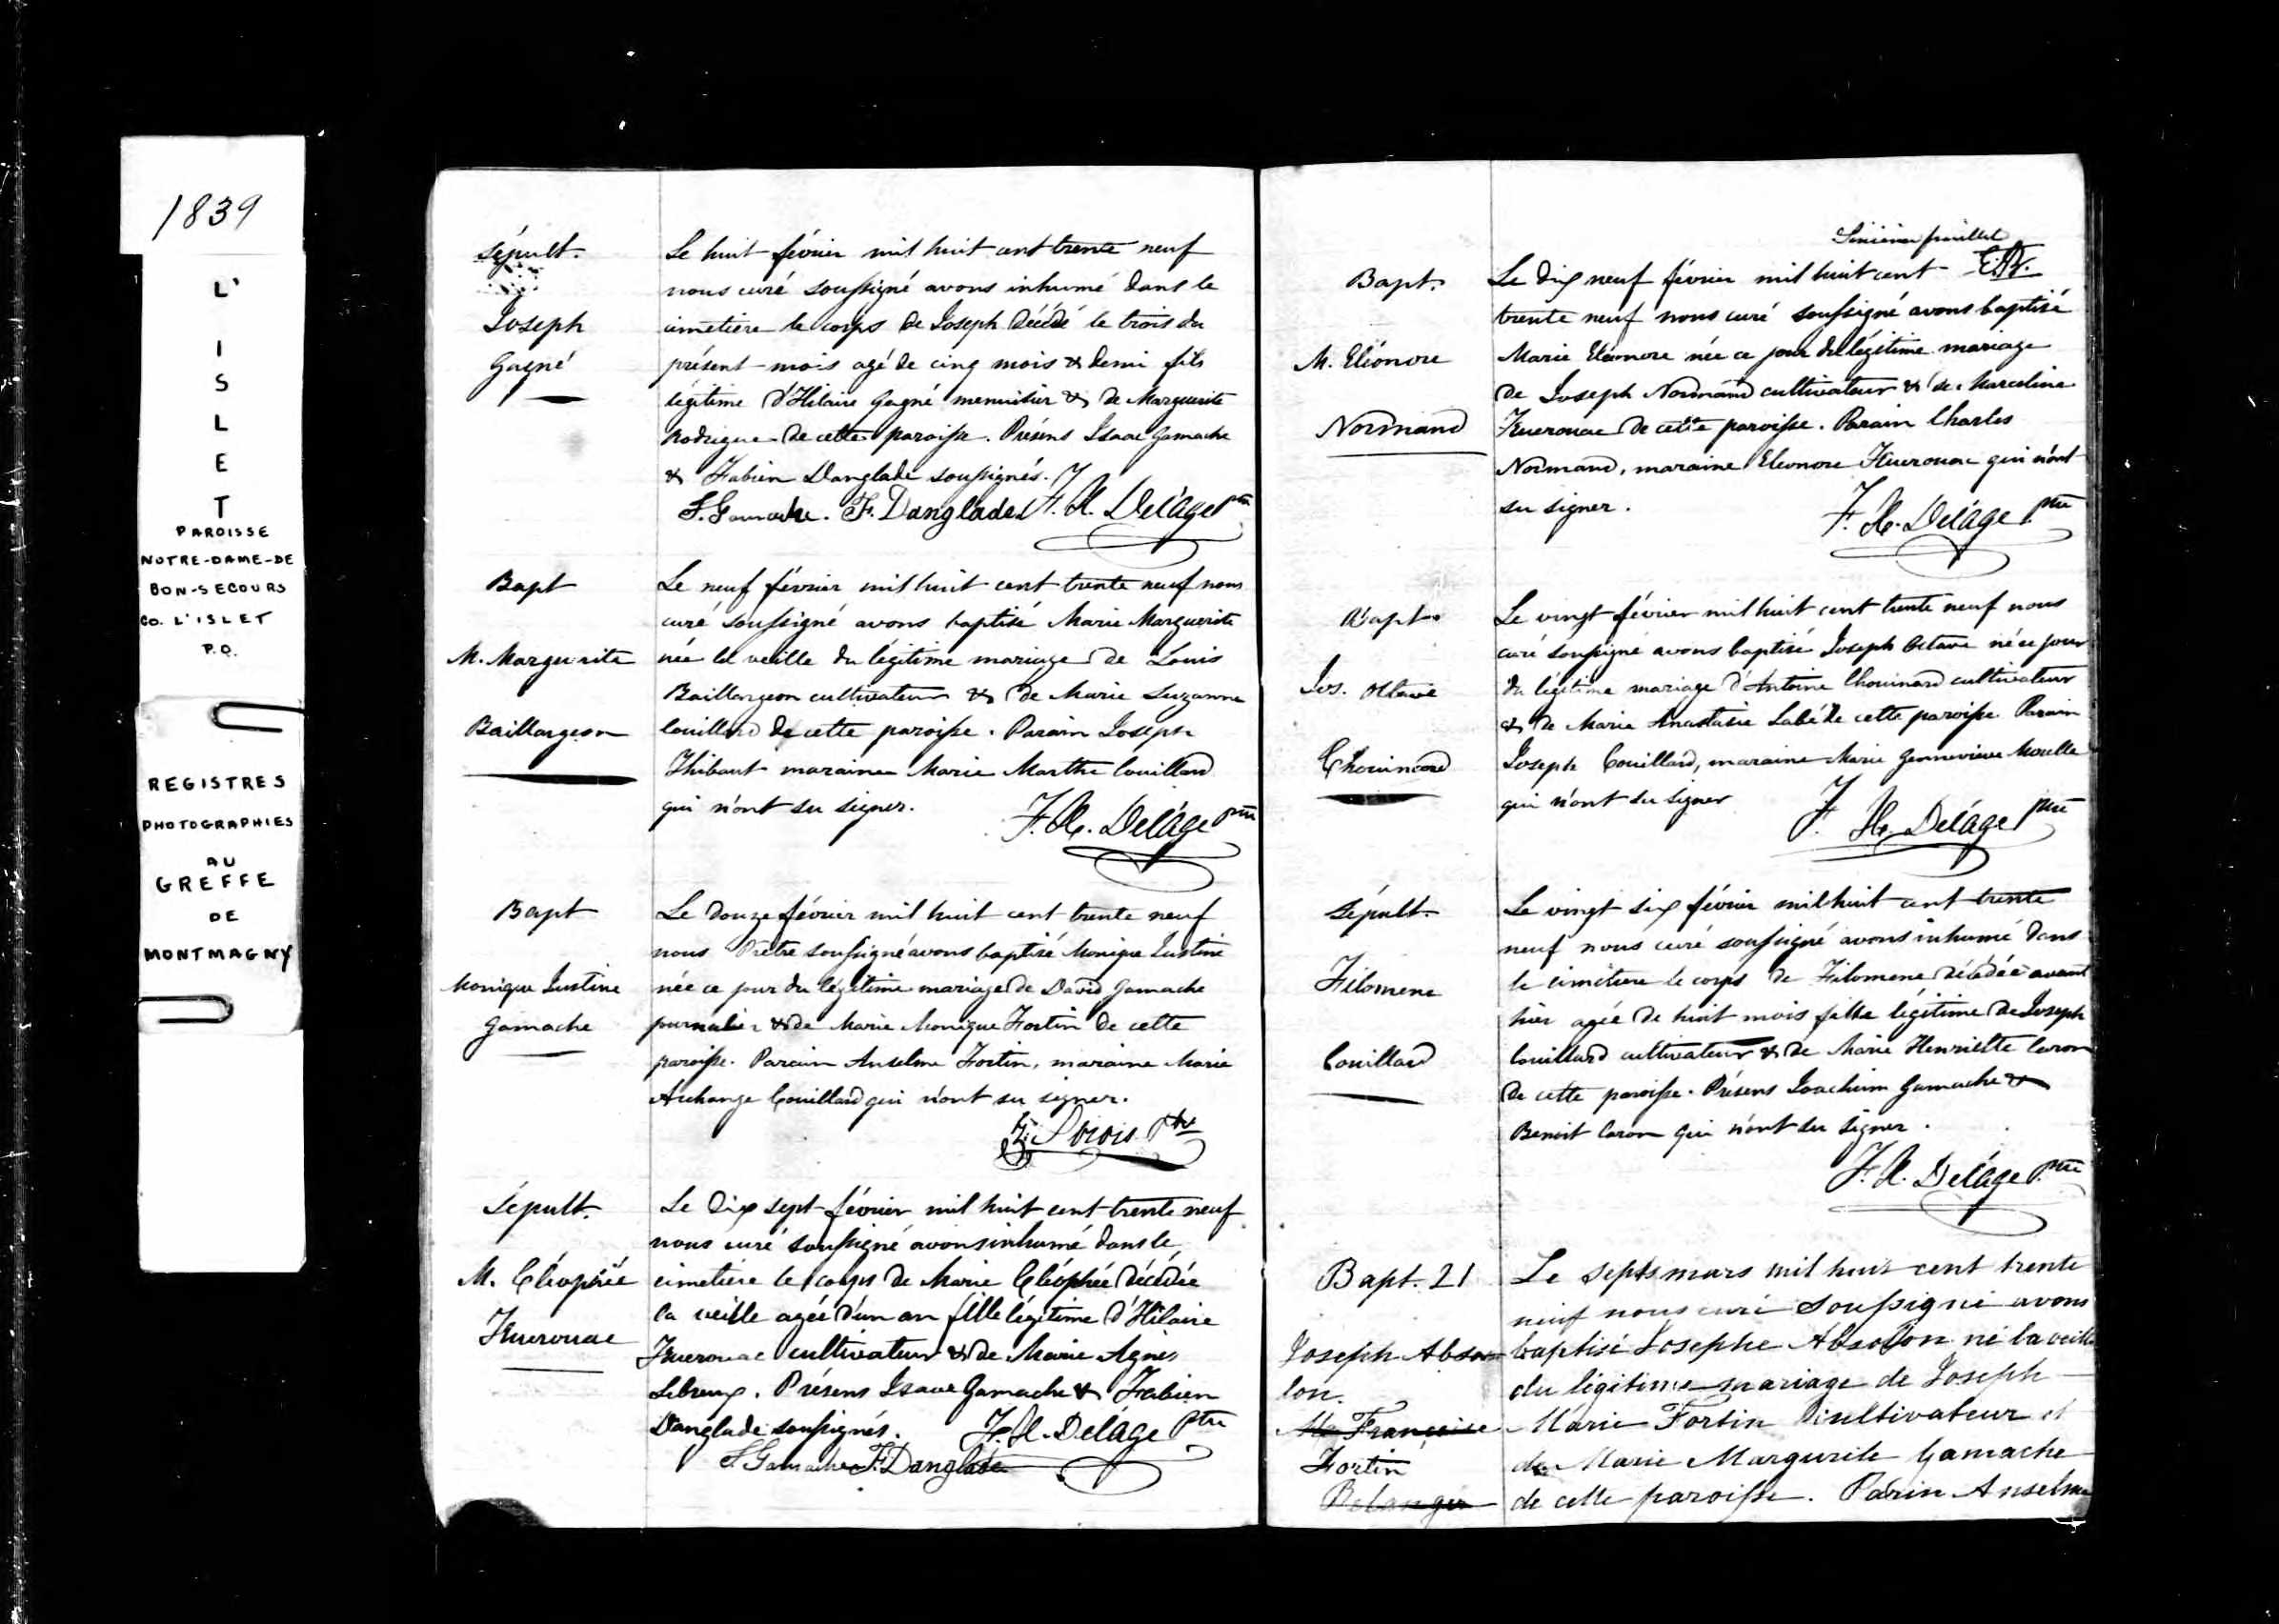 1839
L'
I
S
L
E
T
PAROISSE
NOTRE-DAME-DE
BON-SECOURS
CO. L'ISLET
P.Q.
REGISTRES
PHOTOGRAPHIES
AU
GREFFE
DE
MONTMAGNY
Sépult.
Joseph
Gagné
Le huit février mil huit cent trente neuf
nous curé soussigné avons inhumé dans le
cimetière le corps de Joseph décédé le trois du
présent mois agé de cinq mois & demi fils
légitime d'Hilaire Gagné menuisier & de Marguerite
Rodrigue de cette paroisse. Présens Isaac Gamache
& Fabien Danglade soussignés.
I. Gamache. F. Danglade F. X. Delâge Ptre
Bapt
M. Marguerite
Baillargeon
Le neuf février mil huit cent trente neuf nous
curé soussigné avons baptisé Marie Marguerite
née la veille du légitime mariage de Louis
Baillargeon cultivateur & de Marie Suzanne
Couillard de cette paroisse. Parain Joseph
Thibaut maraine Marie Marthe Couillard
qui n'ont su signer.
F. X. Delâge Ptre
Bapt
Monique Justine
Gamache
Le douze février mil huit cent trente neuf
nous Prêtre soussigné avons baptisé Monique Justine
née ce jour du légitime mariage de David Gamache
journalier & de Marie Monique Fortin de cette
paroisse. Parain Anselme Fortin, maraine Marie
Archange Couillard qui n'ont su signer.
Z. Sirois Ptre
Sépult.
M. Cléophée
Kuerouac
Le dix sept février mil huit cent trente neuf
nous curé soussigné avons inhumé dans le
cimetière le corps de Marie Cléophée décédée
la veille agée d'un an fille légitime d'Hilaire
Kuerouac cultivateur & de Marie Agnès
Lebreux. Présens Isaac Gamache & Fabien
Danglade soussignés. F. X. Delâge Ptre
I Gamache F. Danglade
Sixième feuillet
Bapt.
M. Eléonore
Normand
Le dix neuf février mil huit cent
trente neuf nous curé soussigné avons baptisé
Marie Eléonore née ce jour du légitime mariage
de Joseph Normand cultivateur & de Marceline
Kuerouac de cette paroisse. Parain Charles
Normand, maraine Eleonore Kuerouac qui n'ont
su signer.
F. X. Delâge Ptre
Bapt.
Jos. Octave
Chouinard
Le vingt février mil huit cent trente neuf nous
curé soussigné avons baptisé Joseph Octave né ce jour
du légitime mariage d'Antoine Chouinard cultivateur
& de Marie Anastasie Labé de cette paroisse. Parain
Joseph Couillard, maraine Marie Genneviève
qui n'ont su signer
F. X. Delâge Ptre
Sépult.
Filomene
Couillard
Le vingt six février mil huit cent trente
neuf nous curé soussigné avons inhumé dans
le cimetiere le corps de Filomene décédée avant
hier agée de huit mois fille légitime de Joseph
Couillard cultivateur & de Marie Henriette Caron
de cette paroisse. Présens Joachim Gamache &
Benoit Caron qui n'ont su signer.
F. X. Delâge Ptre
Bapt. 21
Joseph Abso
lon
Me Françoise
Fortin
Belanger
Le sept mars mil huit cent trente
neuf nous curé soussigné avons
baptisé Josephe Absolon né la veille
du légitime mariage de Joseph
Marie Fortin cultivateur et
de Marie Margurite Gamache
de cette paroisse. Parin Anselme